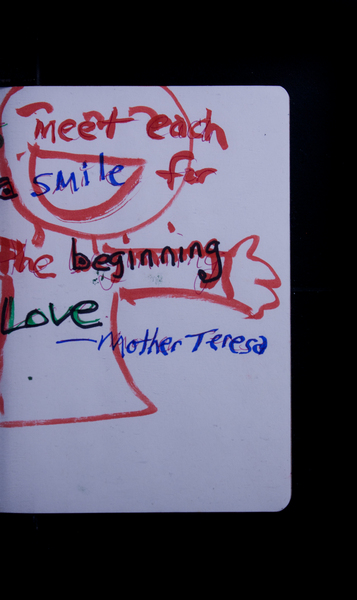 meet each
a smile for
the beginning
Love
—Mother Teresa